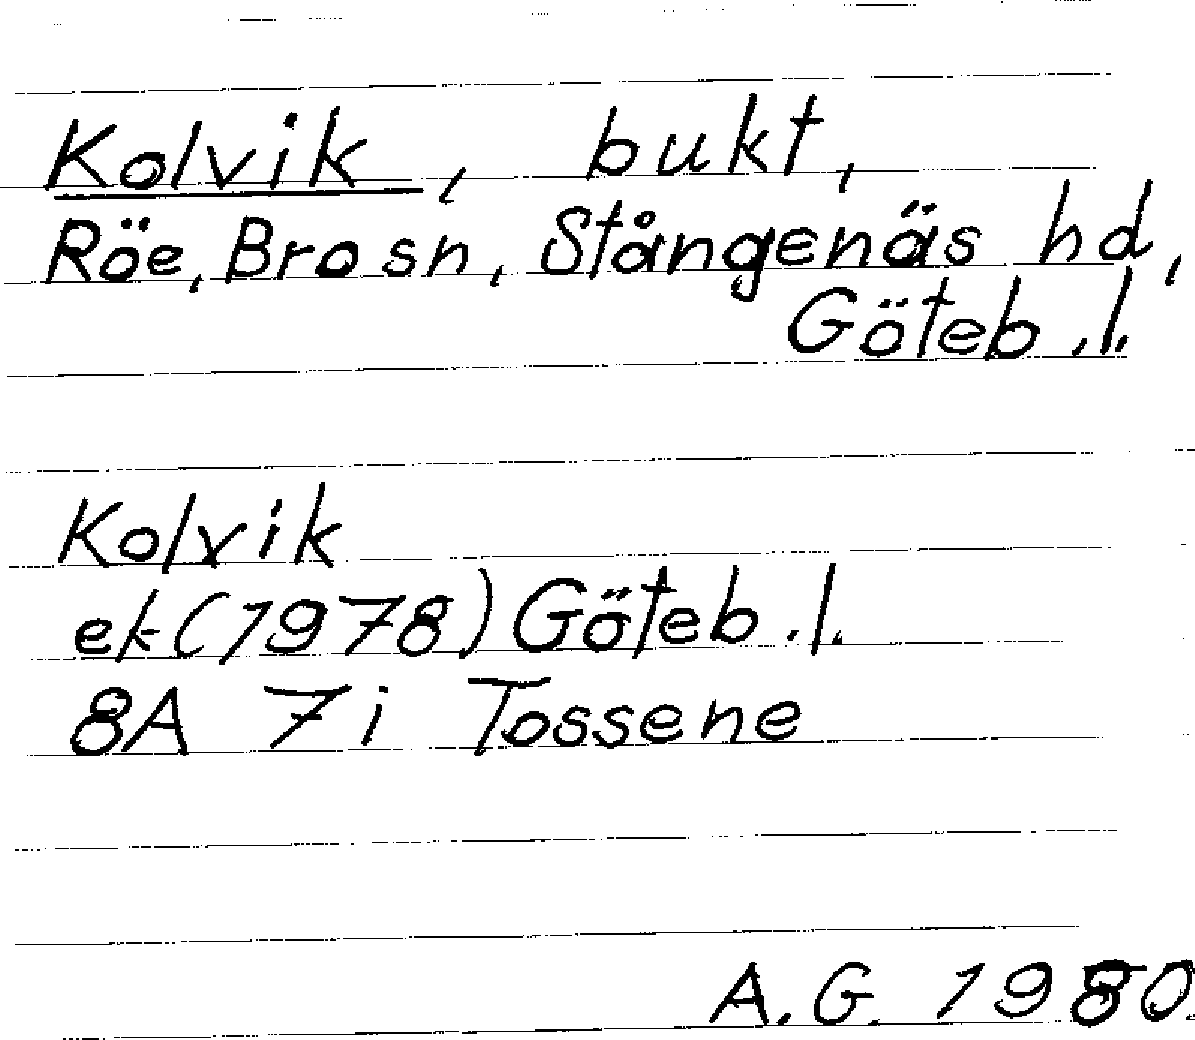 Kolvik, bukt,
Röe, Bro sn, Stångenäs hd,
Göteb.l.
Kolvik
ek (1978) Göteb.l.
8A 7i Tossene
A.G. 1980